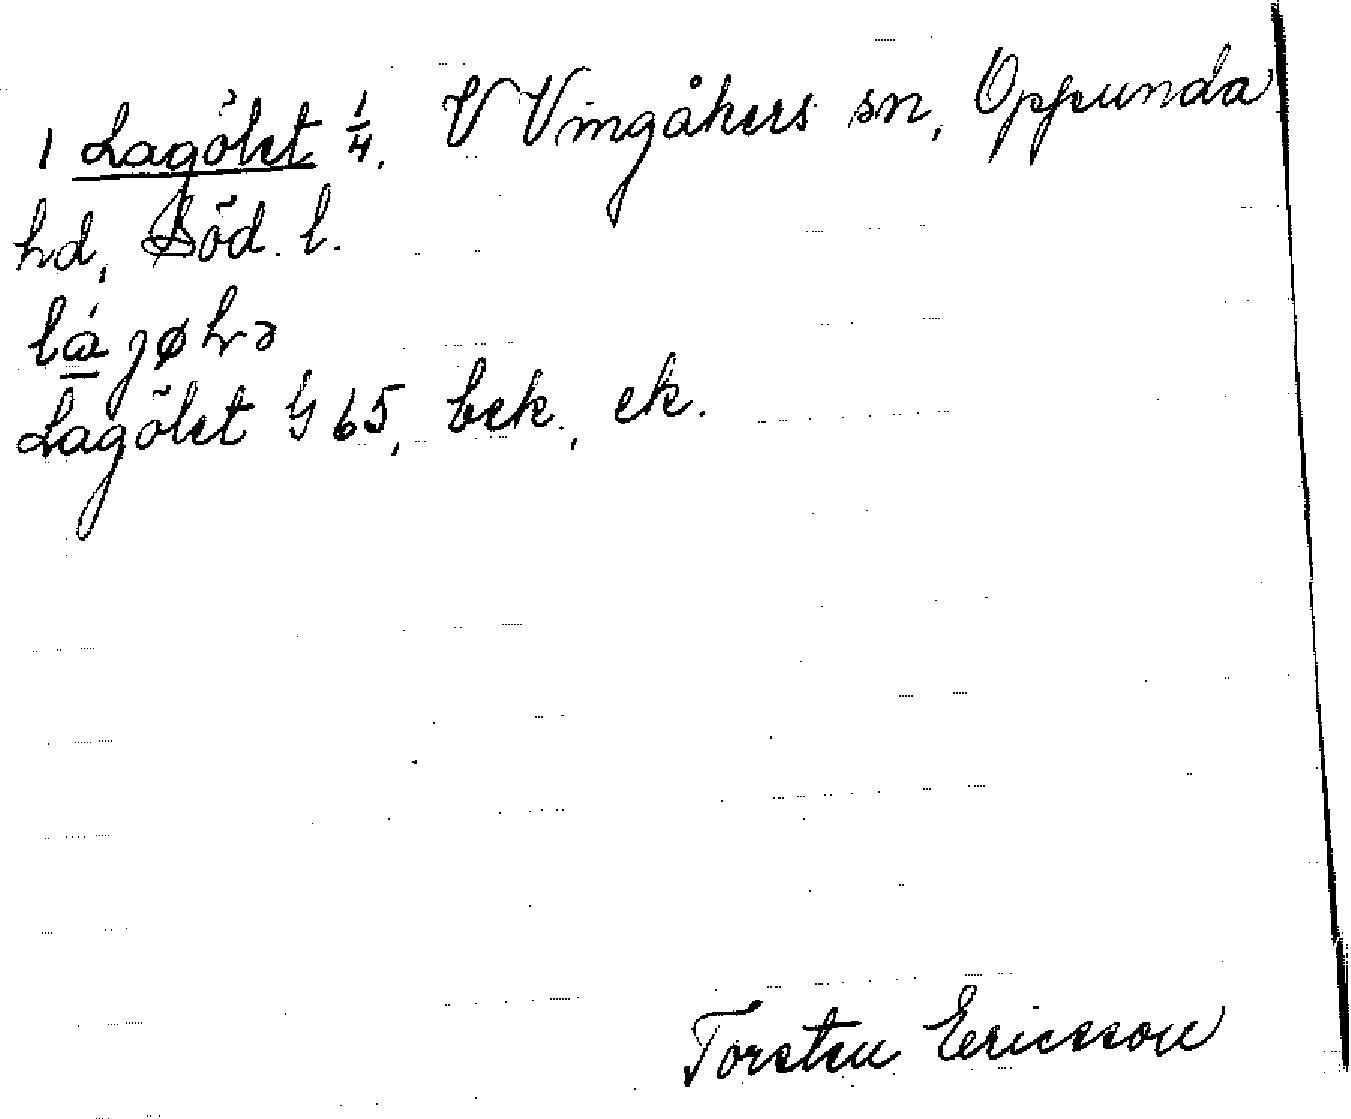 1 Lagölet 1/4. V Vingåkers sn, Oppunda
hd, Söd. l.
Lagölet G 65, bek., ek.
Torsten Ericsson